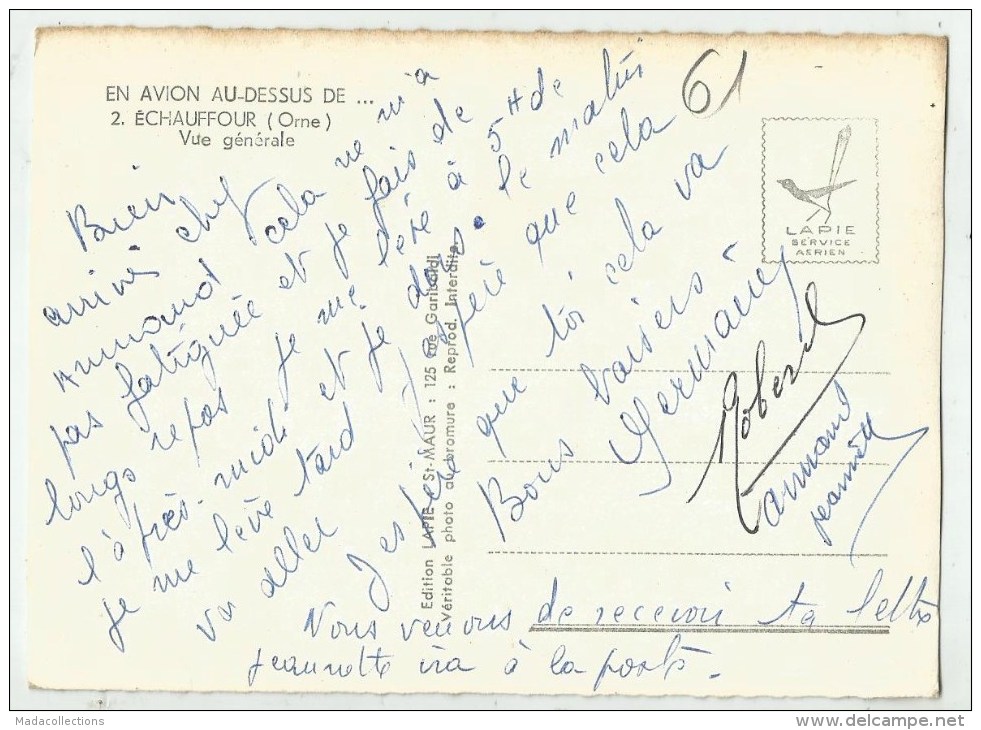 EN AVION AU-DESSUS DE ...
2. ÉCHAUFFOUR (Orne)
Vue générale
61
LAPIE
SERVICE
AERIEN
Bien
arrivé chez
Armand cela ne m'a
pas fatiguée et je fais de
longs repos je me lève à 5H de
l'après-midi et je dors le matin
je me lève tard j'espère que cela
va aller
J'espère que toi cela va
Bons baisers
Germaine
Robert
armand
jeannette
Nous venons de recevoir ta lettre
jeannette ira à la poste.
Edition LAPIE St-MAUR : 125 rue Garibaldi
Véritable photo au bromure : Reprod. Interdite.
Madacollections
www.delcampe.net